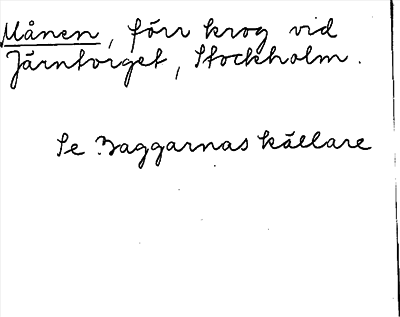 Månen, förr krog vid
Järntorget, Stockholm.
Se Baggarnas källare